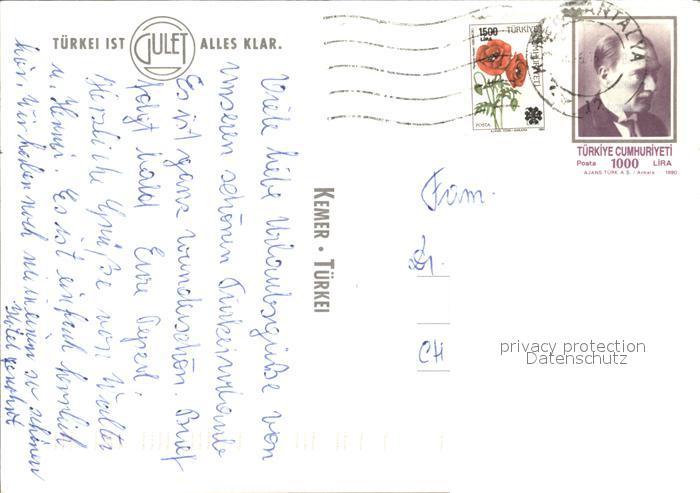 TÜRKEI IST GULET ALLES KLAR.
Viele liebe Urlaubsgrüße von
unserem schönen Türkeiurlaub
Es ist ganz wunderschön. Brief
folgt bald Eure
Herzliche Grüße von Walter
u. Henni. Es ist einfach herrlich
hier. Wir haben noch nie in einem so schönen
Hotel gewohnt
KEMER • TÜRKEI
1500
LİRA
TÜRKİYE
POSTA
AJANS TÜRK - ANKARA
ANTALYA
TÜRKİYE CUMHURİYETİ
Posta 1000 LİRA
AJANS TÜRK A.Ş. / Ankara 1990
Fam.
CH
privacy protection
Datenschutz